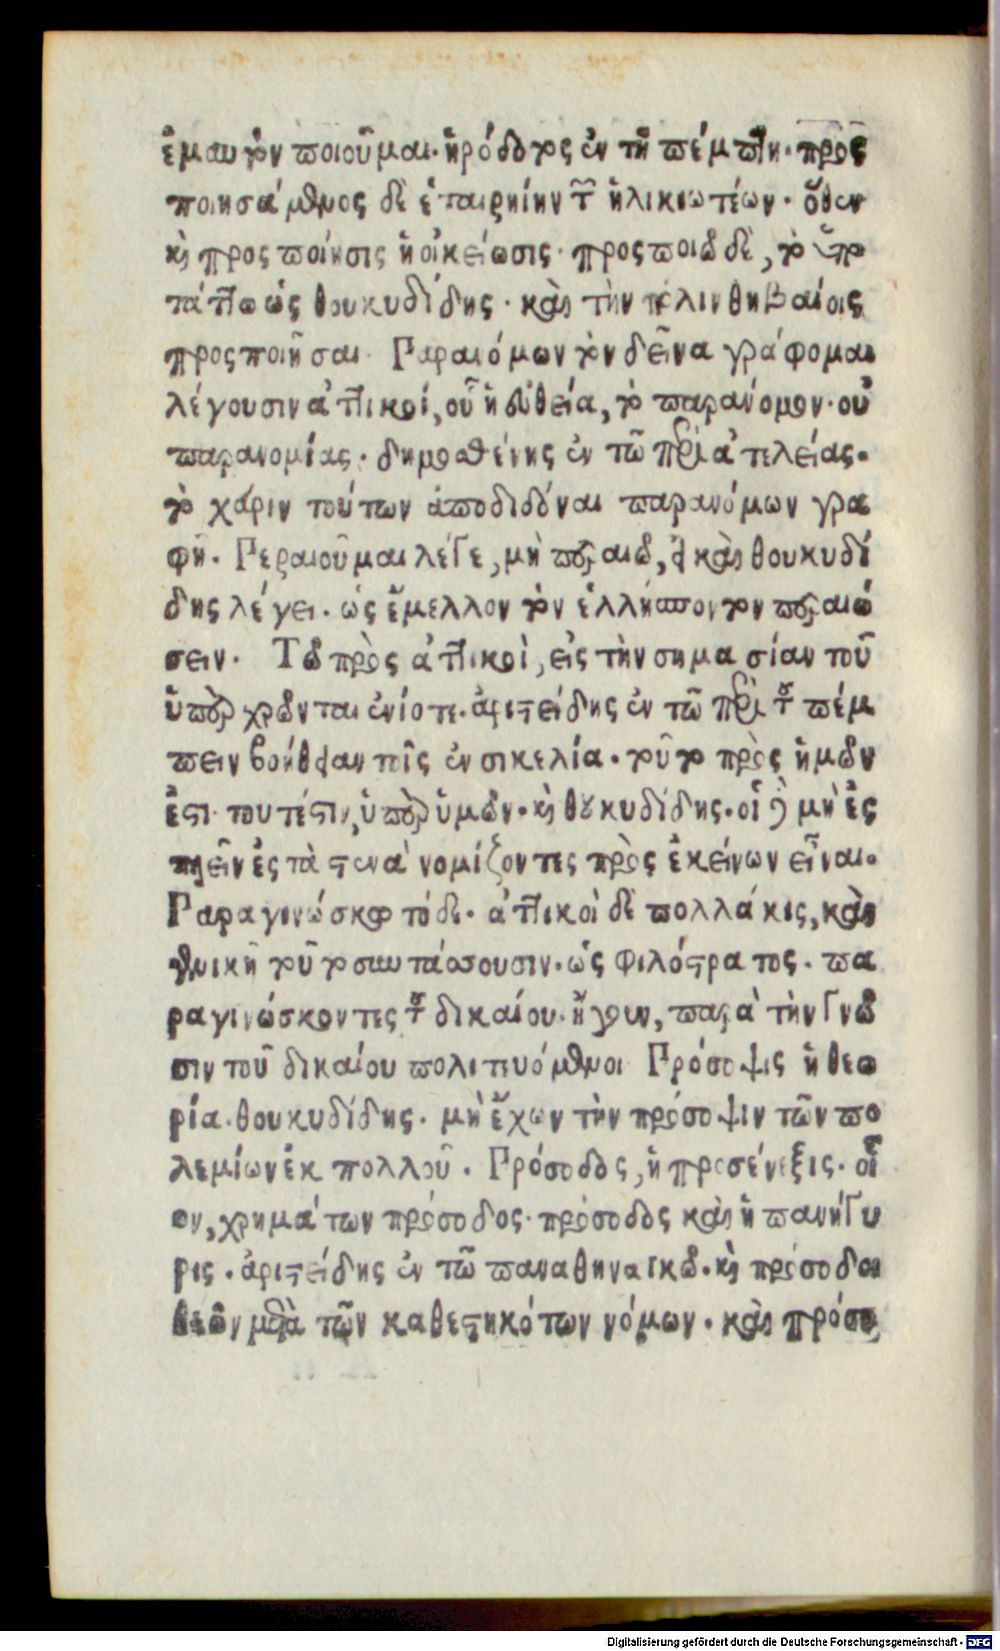 ἐμαυτὸν ποιοῦμαι. ἡρόδοτος ἐν τῇ πέμπτῃ. προς
ποιησάμενος δὲ ἑταιρηίην τῶν ἡλικιωτέων. ὅθεν
καὶ προςποίησις ἡ οἰκείωσις. προςποιῶ δὲ, τὸ
τάττω ὡς θουκυδίδης. καὶ τὴν πόλιν θηβαίοις
προςποιῆσαι. Παρανόμων τὸν δεῖνα γράφομαι
λέγουσιν ἀττικοί, οὗ ἡ εὐθεία, τὸ παράνομον. οὐ
παρανομίας. δημοσθένης ἐν τῷ περὶ ἀτελείας.
τὸ χάριν τούτων ἀποδιδόναι παρανόμων γρα
φή. Περαιοῦμαι λέγε, μὴ περαιῶ, εἰ καὶ θουκυδί
δης λέγει. ὡς ἔμελλον τὸν ἑλλήσποντον περαιώ
σειν. Τῶ πρὸς ἀττικοὶ, εἰς τὴν σημασίαν τοῦ
ὑπὸ χρῶνται ἐνίοτε. ἀριστείδης ἐν τῷ περὶ τοῦ πέμ
πειν βοήθειαν τοῖς ἐν σικελία. τοῦτο πρὸς ἡμῶν
ἐστι. τουτέστιν, ὑπὸ ὑμῶν. καὶ θουκυδίδης. οἱ δὲ μὴ ἐς
πλεῖν ἐς τὰ στενὰ νομίζοντες πρὸς ἐκείνων εἶναι.
Παραγινώσκω τόδε. ἀττικοὶ δὲ πολλάκις, καὶ
γενικῇ τοῦτο συντάσσουσιν. ὡς φιλόστρατος. πα
ραγινώσκοντες τοῦ δικαίου. ἤγουν, παρὰ τὴν γνῶ
σιν τοῦ δικαίου πολιτευόμενοι Πρόσοψις ἡ θεω
ρία. θουκυδίδης. μὴ ἔχων τὴν πρόσοψιν τῶν πο
λεμίων ἐκ πολλοῦ. Πρόσοδος, ἡ προσένεξις. οἷ
ον, χρημάτων πρόσοδος. πρόσοδος καὶ ἡ πανήγυ
ρις. ἀριστείδης ἐν τῷ παναθηναικῶ. καὶ πρόσοδοι
θεῶν μετὰ τῶν καθεστηκότων νόμων. καὶ πρόσο
Digitalisierung gefördert durch die Deutsche Forschungsgemeinschaft - DFG